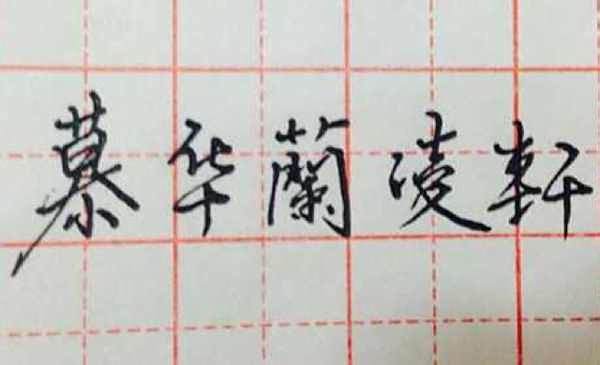 慕华蘭凌軒